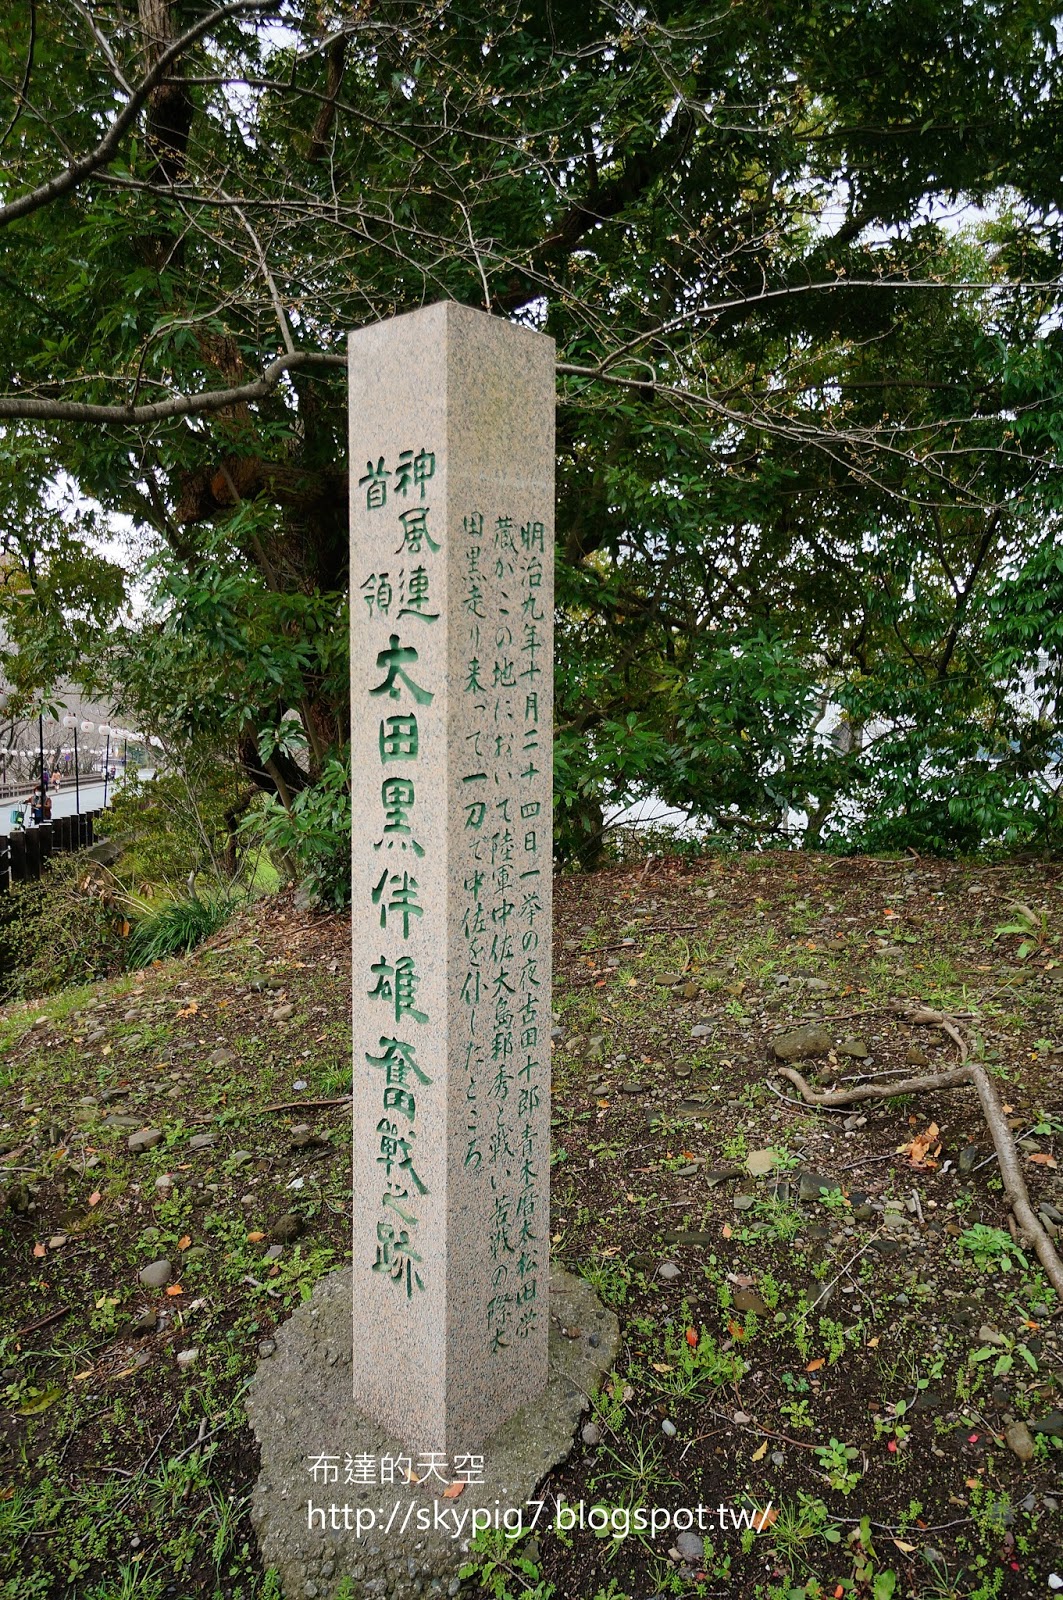 神風連
首領
太田黒伴雄奮戦之跡
明治九年十月二十四日一挙の夜吉田十郎青木暦太松田栄
蔵がこの地において陸軍中佐大島邦秀と戦い苦戦の際太
田黒走り来って一刀で中佐を仆したところ
布達的天空
http://skypig7.blogspot.tw/